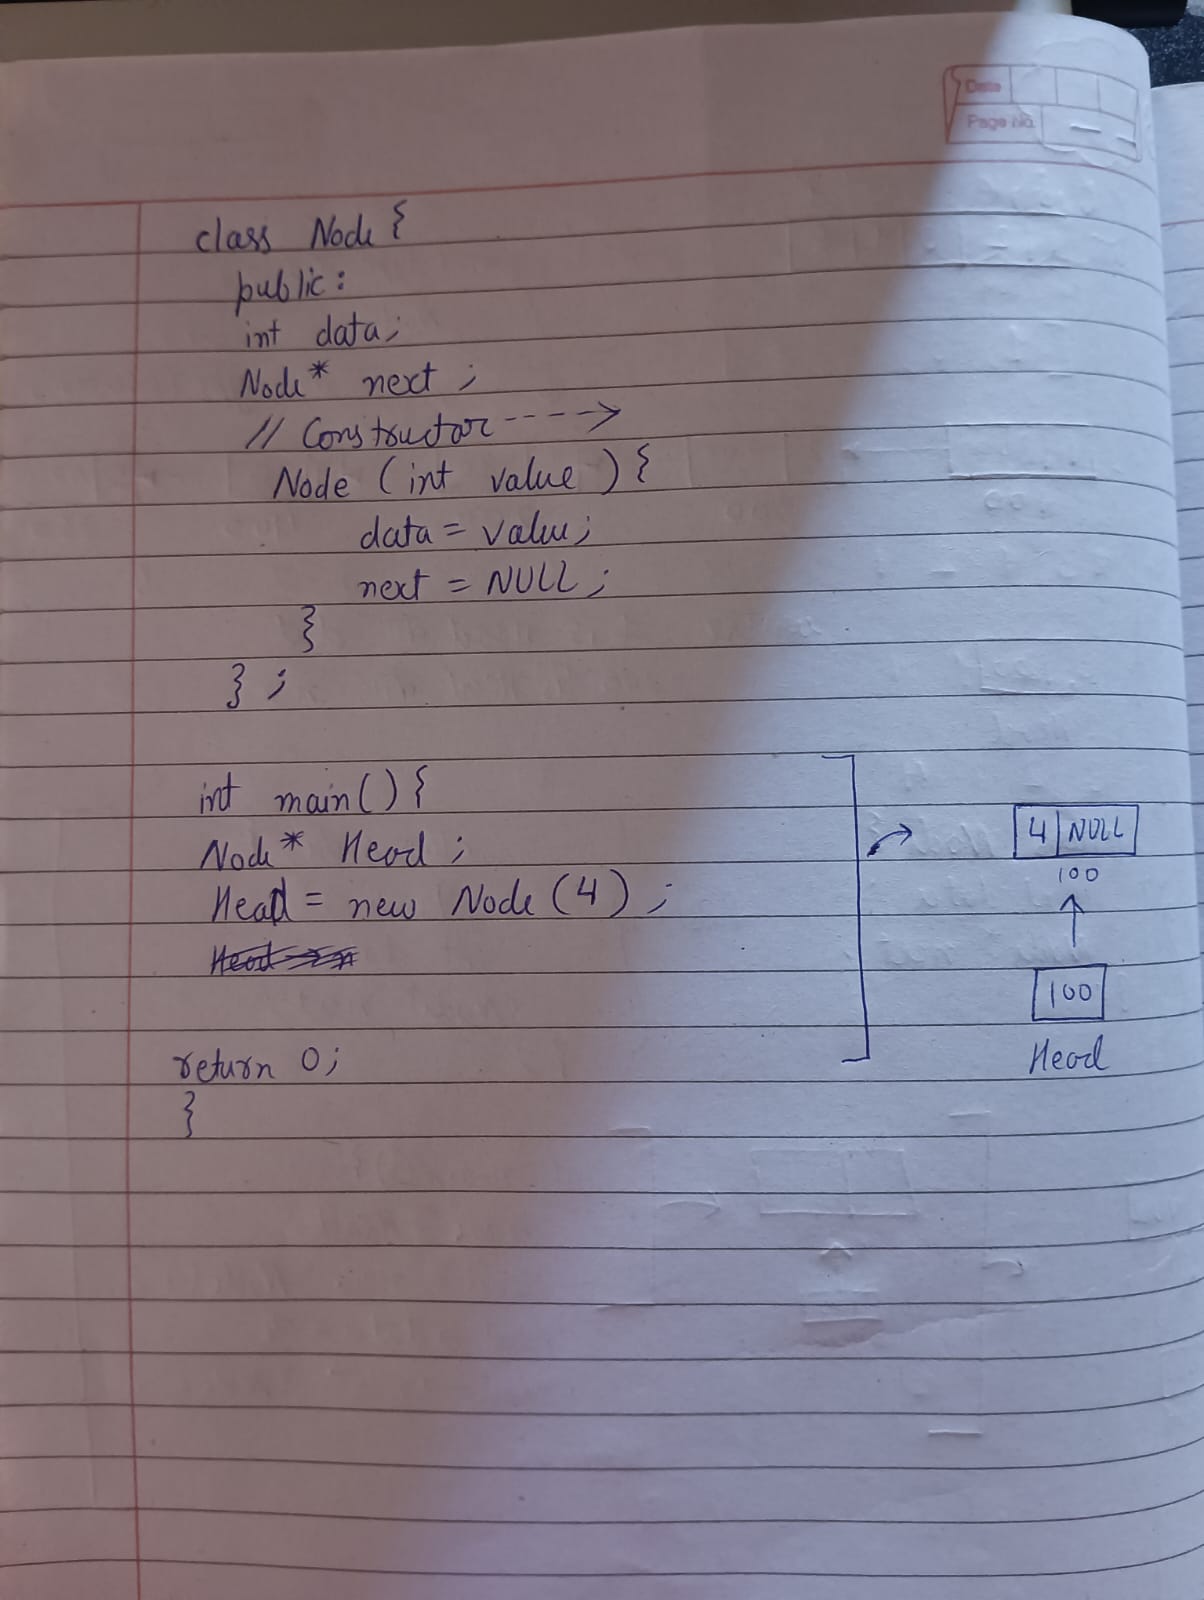 Date
Page No.
class Node {
public:
int data;
Node* next;
// Constructor ---->
Node (int value) {
data = value;
next = NULL;
}
};
int main() {
Node* Head;
Head = new Node(4);
return 0;
}
4 | NULL
100
100
Head